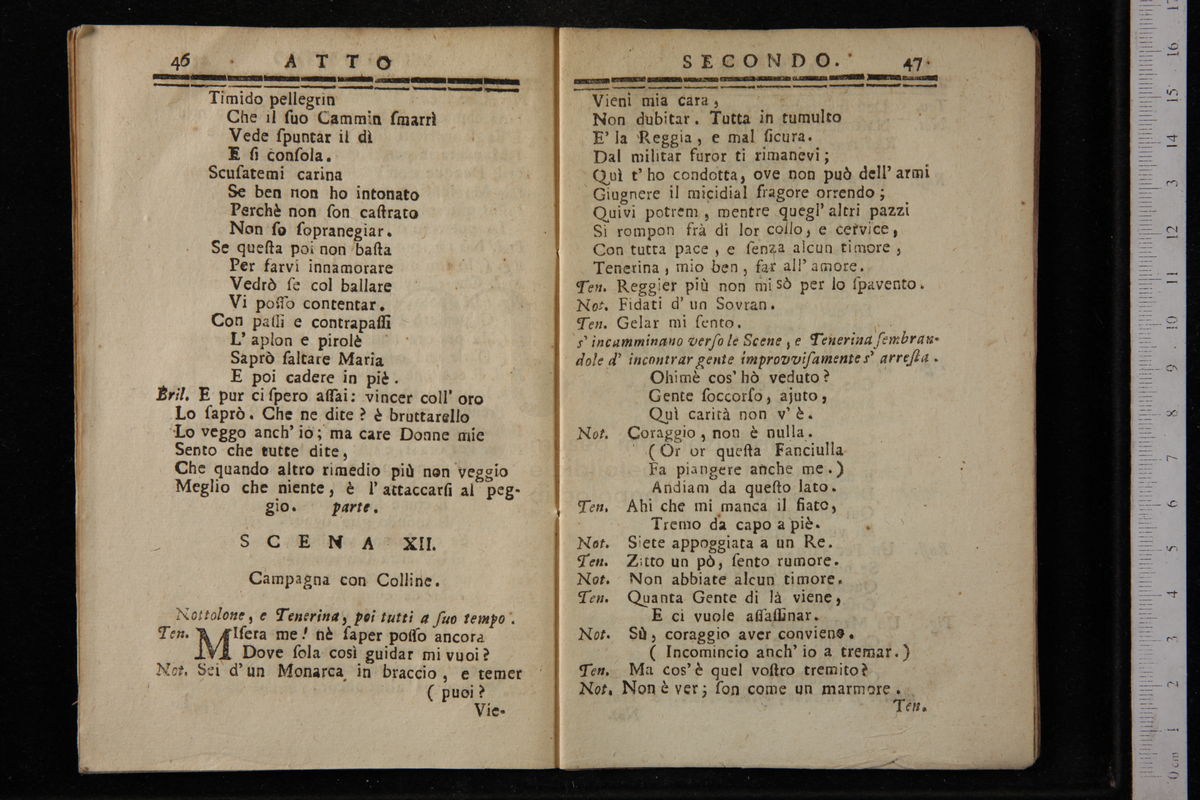 46 ATTO
Timido pellegrin
Che il ſuo Cammin ſmarrì
Vede ſpuntar il dì
E ſi conſola.
Scuſatemi carina
Se ben non ho intonato
Perchè non ſon caſtrato
Non ſo ſopranegiar.
Se queſta poi non baſta
Per farvi innamorare
Vedrò ſe col ballare
Vi poſſo contentar.
Con paſſi e contrapaſſi
L' aplon e pirolè
Saprò ſaltare Maria
E poi cadere in piè.
Bril. E pur ci ſpero aſſai: vincer coll' oro
Lo ſaprò. Che ne dite? è bruttarello
Lo veggo anch' io; ma care Donne mie
Sento che tutte dite,
Che quando altro rimedio più non veggio
Meglio che niente, è l' attaccarſi al peg-
gio. parte.
SCENA XII.
Campagna con Colline.
Nottolone, e Tenerina, poi tutti a ſuo tempo.
Ten. MIſera me! nè ſaper poſſo ancora
Dove ſola così guidar mi vuoi?
Not. Sei d' un Monarca in braccio, e temer
( puoi?
Vie-
SECONDO. 47
Vieni mia cara,
Non dubitar. Tutta in tumulto
E' la Reggia, e mal ſicura.
Dal militar furor ti rimanevi;
Quì t' ho condotta, ove non può dell' armi
Giugnere il micidial fragore orrendo;
Quivi potrem, mentre quegl' altri pazzi
Si rompon frà di lor collo, e cervice,
Con tutta pace, e ſenza alcun timore,
Tenerina, mio ben, far all' amore.
Ten. Reggier più non mi sò per lo ſpavento.
Not. Fidati d' un Sovran.
Ten. Gelar mi ſento.
s' incamminano verſo le Scene, e Tenerina ſembran-
dole d' incontrar gente improvviſamente s' arreſta.
Ohimè cos' hò veduto?
Gente ſoccorſo, ajuto,
Quì carità non v' è.
Not. Coraggio, non è nulla.
( Or or queſta Fanciulla
Fa piangere anche me.)
Andiam da queſto lato.
Ten. Ahi che mi manca il fiato,
Tremo da capo a piè.
Not. Siete appoggiata a un Re.
Ten. Zitto un pò, ſento rumore.
Not. Non abbiate alcun timore.
Ten. Quanta Gente di là viene,
E ci vuole aſſaſſinar.
Not. Sù, coraggio aver conviene.
( Incomincio anch' io a tremar.)
Ten. Ma cos' è quel voſtro tremito?
Not. Non è ver; ſon come un marmore.
Ten.